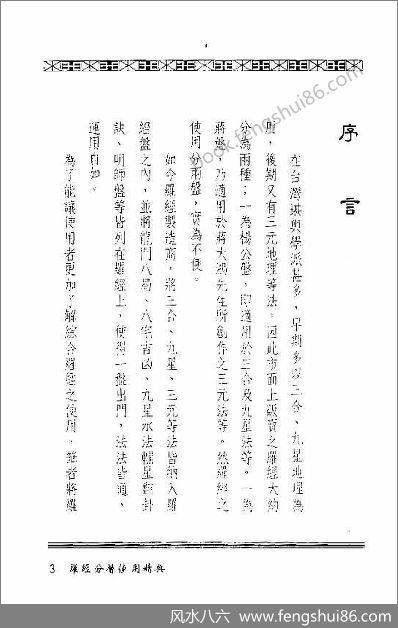 序言
在台灣堪輿學派甚多，早期多以三合、九星地理為
則，後期又有三元地理等法。因此市面上販賣之羅經大約
分為兩種：一為楊公盤，即適用於三合及九星法等。一為
蔣盤，乃適用於蔣大鴻先生所創作之三元法等。然羅經之
使用分兩盤，實為不便。
如今羅經製造商，將三合、九星、三元等法皆納入羅
經盤之內，並將龍門八局、八宅吉凶、九星水法輔星翻卦
訣、明師盤等皆列在羅經上，使得一盤出門，法法皆通、
運用自如。
為了能讓使用者更加了解綜合羅經之使用，筆者將羅
3 羅經分層使用精典
book.fengshui86.com
风水八六 www.fengshui86.com